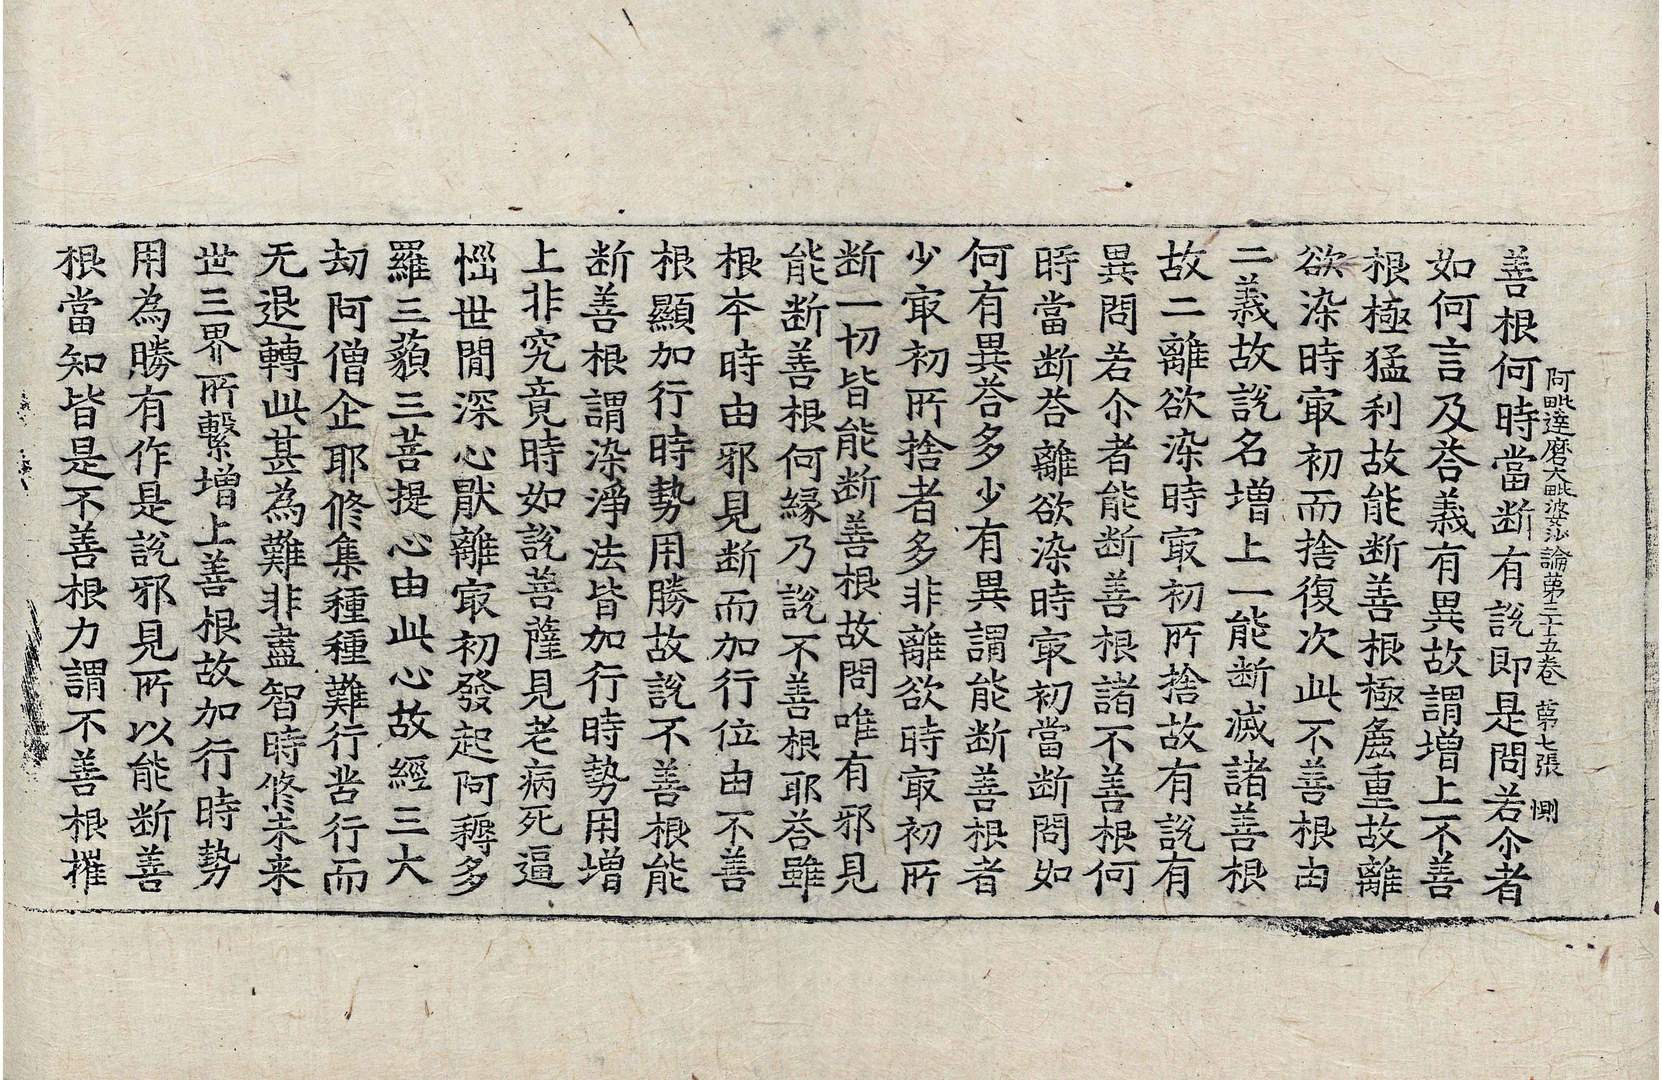 阿毗達磨大毗婆沙論第三十五卷　第七張　惻
善根何時當断有說即是問若尒者
如何言及荅義有異故謂增上不善
根極猛利故能断善根極麁重故離
欲染時㝡初而捨復次此不善根由
二義故說名增上一能断滅諸善根
故二離欲染時㝡初所捨故有說有
異問若尒者能断善根諸不善根何
時當断荅離欲染時㝡初當断問如
何有異荅多少有異謂能断善根者
少㝡初所捨者多非離欲時㝡初所
断一切皆能断善根故問唯有邪見
能断善根何緣乃說不善根耶荅雖
根夲時由邪見断而加行位由不善
根顯加行時勢用勝故說不善根能
断善根謂染淨法皆加行時勢用增
上非究竟時如說菩薩見老病死逼
惱世間深心猒離㝡初發起阿耨多
羅三藐三菩提心由此心故經三大
劫阿僧企耶修集種種難行苦行而
无退轉此甚為難非盡智時修未来
世三界所繫增上善根故加行時勢
用為勝有作是說邪見所以能断善
根當知皆是不善根力謂不善根摧